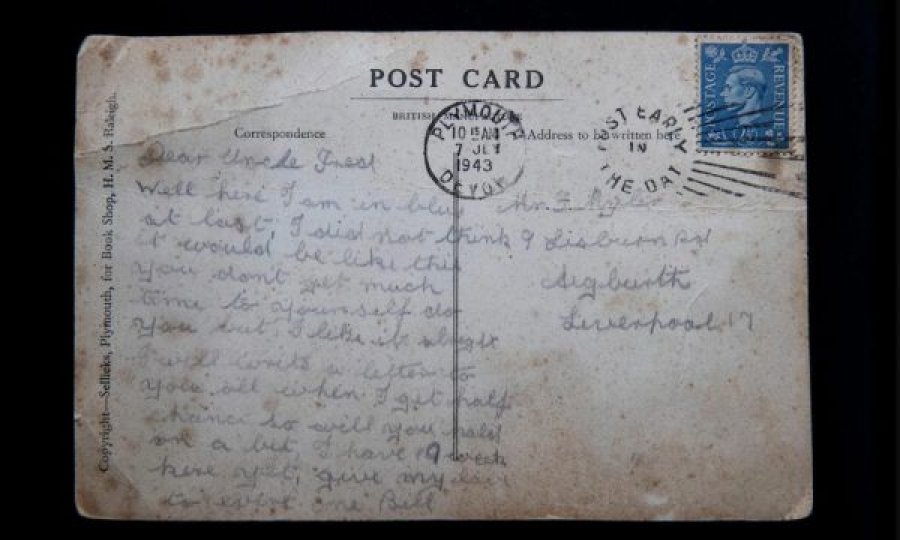 POST CARD
BRITISH
Correspondence
Address to be written here
PLYMOUTH
10 15 AM
7 JLY
1943
DEVON
POST EARLY
IN
THE DAY
POSTAGE
REVENUE
Copyright—Sellicks, Plymouth, for Book Shop, H. M. S. Raleigh.
Dear Uncle Fred
Well here I am in blue
at last, I did not think
it would be like this
you don't get much
time to yourself do
you but, I like it alright
I will write a letter to
you all when I get half
chance so will you hold
on a bit, I have 9 week
here yet, give my love
to every one Bill
Mr F
9 Lisburn Rd
Aigburth
Liverpool 17